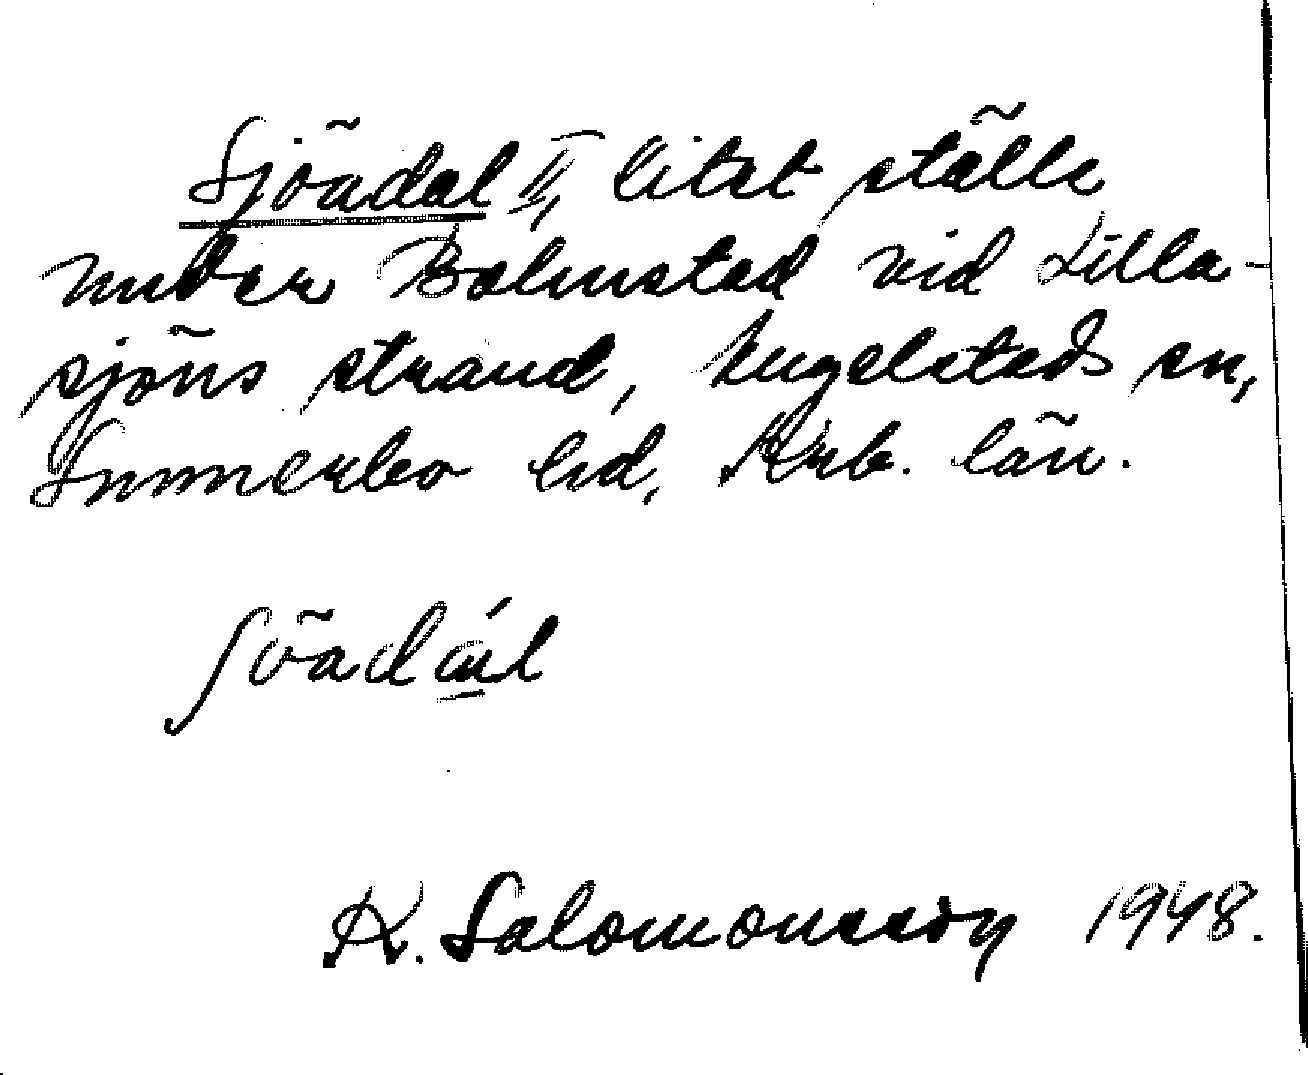 Sjöadal II, litet ställe
under Bolmstad vid Lilla-
sjöns strand, Angelstads sn,
Sunnerbo hd, Krb. län.
ʃöadál
K. Salomonsson 1948.